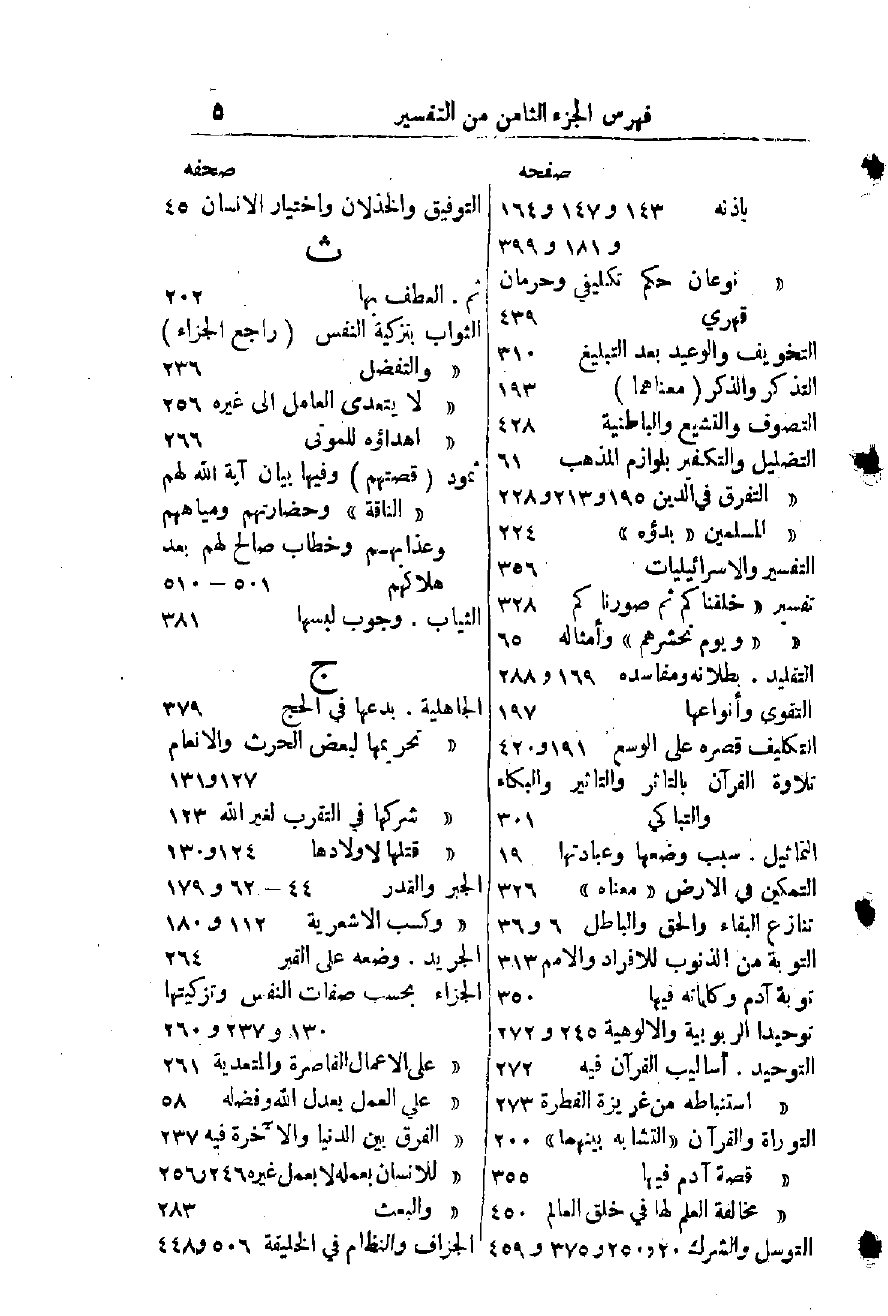 فهرس الجزء الثامن من التفسير ٥
صفحه
باذنه ١٤٣ و ١٤٧ و ١٦٤
و ١٨١ و ٣٩٩
« نوعان حكم تكليفي وحرمان
قهري ٤٣٩
التخويف والوعيد بعد التبليغ ٣١٠
التذكر والذكر ( معناهما ) ١٩٣
التصوف والتشيع والباطنية ٤٢٨
التضليل والتكفير بلوازم المذهب ٦١
« التفرق في الدين ١٩٥ و ٢١٣ و ٢٢٨
« المسلمين « بدؤه » ٢٢٤
التفسير والاسرائيليات ٣٥٦
تفسير « خلقناكم ثم صورناكم ٣٢٨
« « ويوم نحشرهم » وأمثاله ٦٥
التقليد . بطلانه ومفاسده ١٦٩ و ٢٨٨
التقوي وأنواعها ١٩٧
التكليف قصره على الوسع ١٩١ و ٤٢٠
تلاوة القرآن بالتاثر والتاثير والبكاء
والتباكي ٣٠١
التماثيل . سبب وضعها وعبادتها ١٩
التمكين في الارض « معناه » ٣٢٦
تنازع البقاء والحق والباطل ٦ و ٣٦
التوبة من الذنوب للافراد والامم ٣١٣
توبة آدم وكلماته فيها ٣٥٠
توحيدا الربوبية والالوهية ٢٤٥ و ٢٧٢
التوحيد . أساليب القرآن فيه ٢٧٢
« استنباطه من غريزة الفطرة ٢٧٣
التوراة والقرآن «التشابه بينهما» ٢٠٠
« قصة آدم فيها ٣٥٥
« مخالفة العلم لها في خلق العالم ٤٥٠
التوسل والشرك ٢٠ و ٢٥٠ و ٣٧٥ و ٤٥٩
صحفه
التوفيق والخذلان واختيار الانسان ٤٥
ث
ثم . العطف بها ٢٠٢
الثواب بتزكية النفس ( راجع الجزاء )
« والتفضل ٢٣٦
« لا يتعدى العامل الى غيره ٢٥٦
« اهداؤه للموتى ٢٦٦
ثمود ( قصتهم ) وفيها بيان آية الله لهم
« الناقة » وحضارتهم ومياههم
وعذابهم وخطاب صالح لهم بعد
هلاكهم ٥٠١ – ٥١٠
الثياب . وجوب لبسها ٣٨١
ج
الجاهلية . بدعها في الحج ٣٧٩
« تحريمها لبعض الحرث والانعام
١٢٧ و ١٣١
« شركها في التقرب لغير الله ١٢٣
« قتلها لاولادها ١٢٤ و ١٣٠
الجبر والقدر ٤٤ – ٦٢ و ١٧٩
« وكسب الاشعرية ١١٢ و ١٨٠
الجريد . وضعه على القبر ٢٦٤
الجزاء بحسب صفات النفس وتزكيتها
١٣٠ و ٢٣٧ و ٢٦٠
« على الاعمال القاصرة والمتعدية ٢٦١
« علي العمل بعدل الله وفضله ٥٨
« الفرق بين الدنيا والآخرة فيه ٢٣٧
« للانسان بعمله لا بعمل غيره ٢٤٦ و ٢٥٦
« والبعث ٢٨٣
الجزاف والنظام في الخليقة ٥٠٦ و ٤٤٨